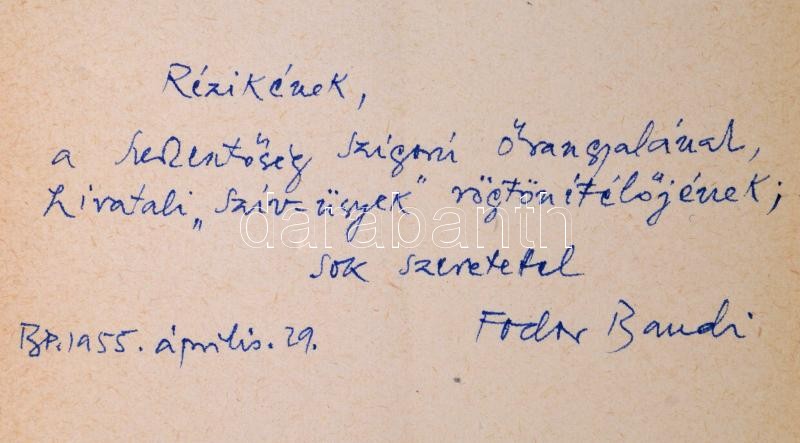 Rézikének,
a szerkesztőség szigorú őrangyalának,
hivatali „szív-ügyek" rögtönítélőjének;
darabanth
sok szeretetel
Fodor Bandi
BP. 1955. április. 29.